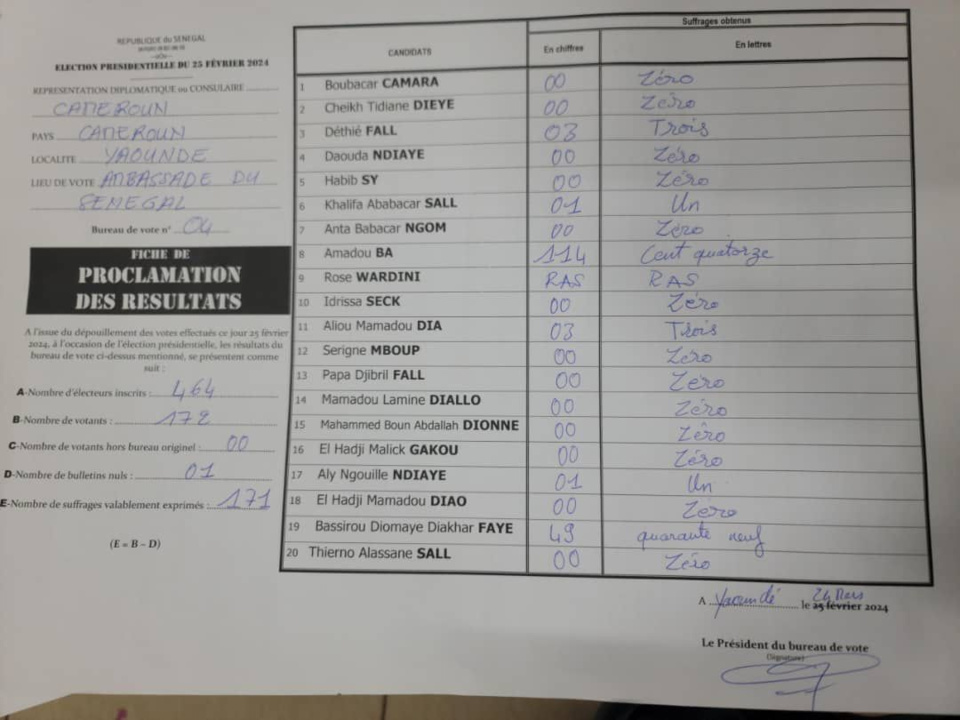 REPUBLIQUE du SENEGAL
ELECTION PRESIDENTIELLE DU 25 FÉVRIER 2024
REPRESENTATION DIPLOMATIQUE ou CONSULAIRE
CAMEROUN
PAYS CAMEROUN
LOCALITE YAOUNDE
LIEU DE VOTE AMBASSADE DU
SENEGAL
Bureau de vote n° 04
FICHE DE
PROCLAMATION
DES RESULTATS
A l'issue du dépouillement des votes effectués ce jour 25 février
2024, à l'occasion de l'élection présidentielle, les résultats du
bureau de vote ci-dessus mentionné, se présentent comme
suit :
A-Nombre d'électeurs inscrits : 464
B-Nombre de votants : 172
C-Nombre de votants hors bureau originel : 00
D-Nombre de bulletins nuls : 01
E-Nombre de suffrages valablement exprimés : 171
(E = B – D)
CANDIDATS
Suffrages obtenus
En chiffres En lettres
1 Boubacar CAMARA 00 Zéro
2 Cheikh Tidiane DIEYE 00 Zéro
3 Déthié FALL 03 Trois
4 Daouda NDIAYE 00 Zéro
5 Habib SY 00 Zéro
6 Khalifa Ababacar SALL 01 Un
7 Anta Babacar NGOM 00 Zéro
8 Amadou BA 114 Cent quatorze
9 Rose WARDINI RAS RAS
10 Idrissa SECK 00 Zéro
11 Aliou Mamadou DIA 03 Trois
12 Serigne MBOUP 00 Zéro
13 Papa Djibril FALL 00 Zéro
14 Mamadou Lamine DIALLO 00 Zéro
15 Mahammed Boun Abdallah DIONNE 00 Zéro
16 El Hadji Malick GAKOU 00 Zéro
17 Aly Ngouille NDIAYE 01 Un
18 El Hadji Mamadou DIAO 00 Zéro
19 Bassirou Diomaye Diakhar FAYE 49 quarante neuf
20 Thierno Alassane SALL 00 Zéro
24 Mars
A Yaoundé le 25 février 2024
Le Président du bureau de vote
(Signature)